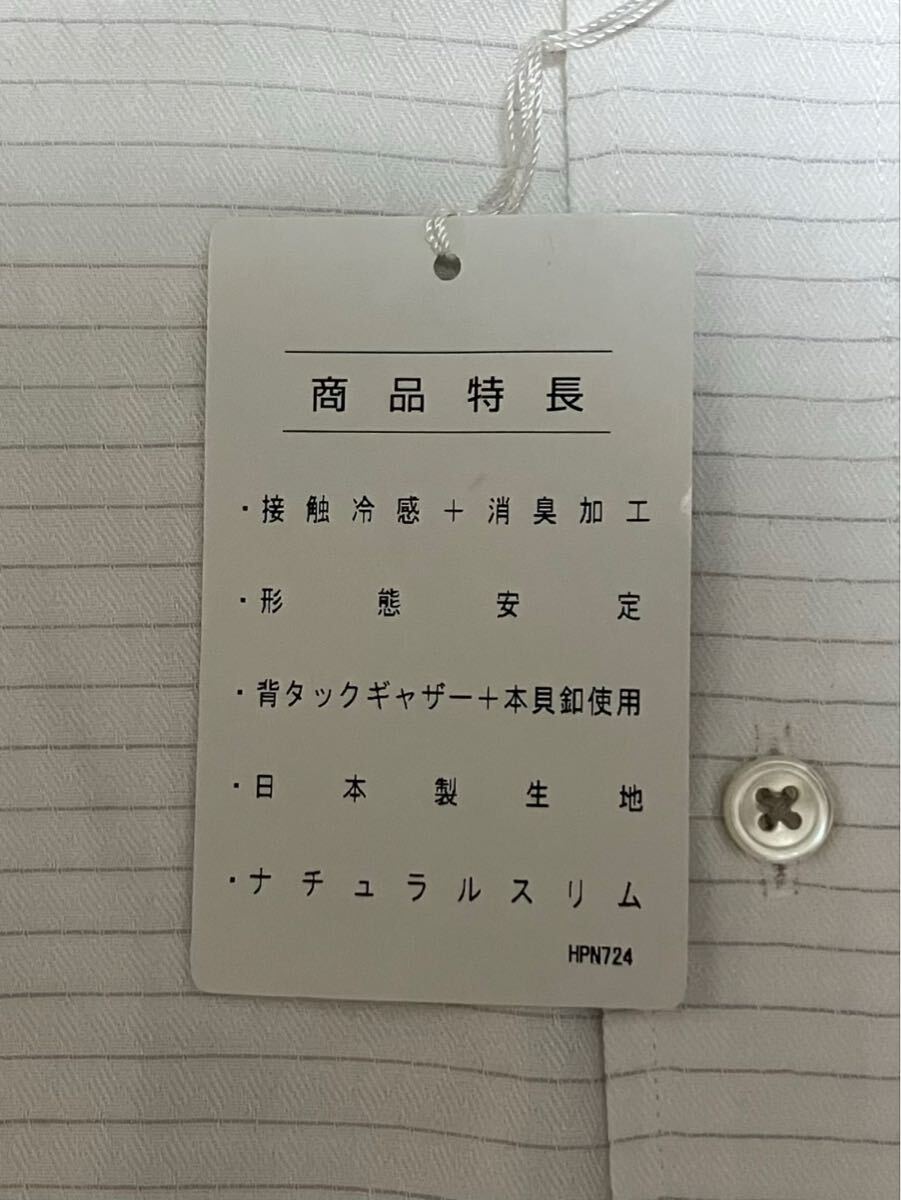 商品特長
・接触冷感＋消臭加工
・形態安定
・背タックギャザー＋本貝釦使用
・日本製生地
・ナチュラルスリム
HPN724